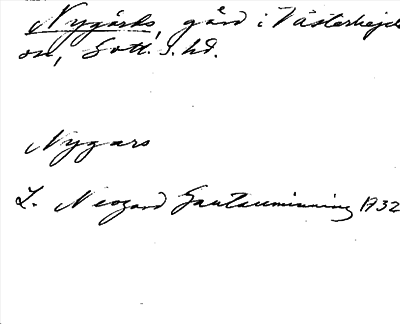 Nygårds, gård i Västerhejde
sn, Gotl. S. hd.
Nygars
L. Neogard Gautauminning 1932